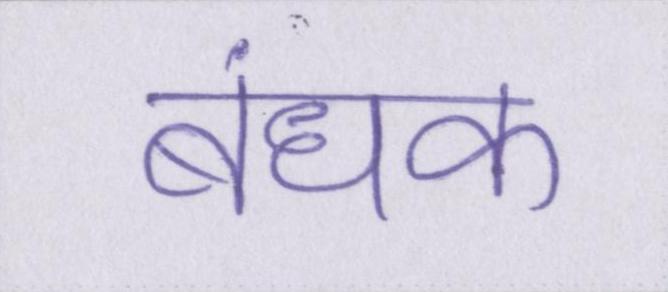 बंधक